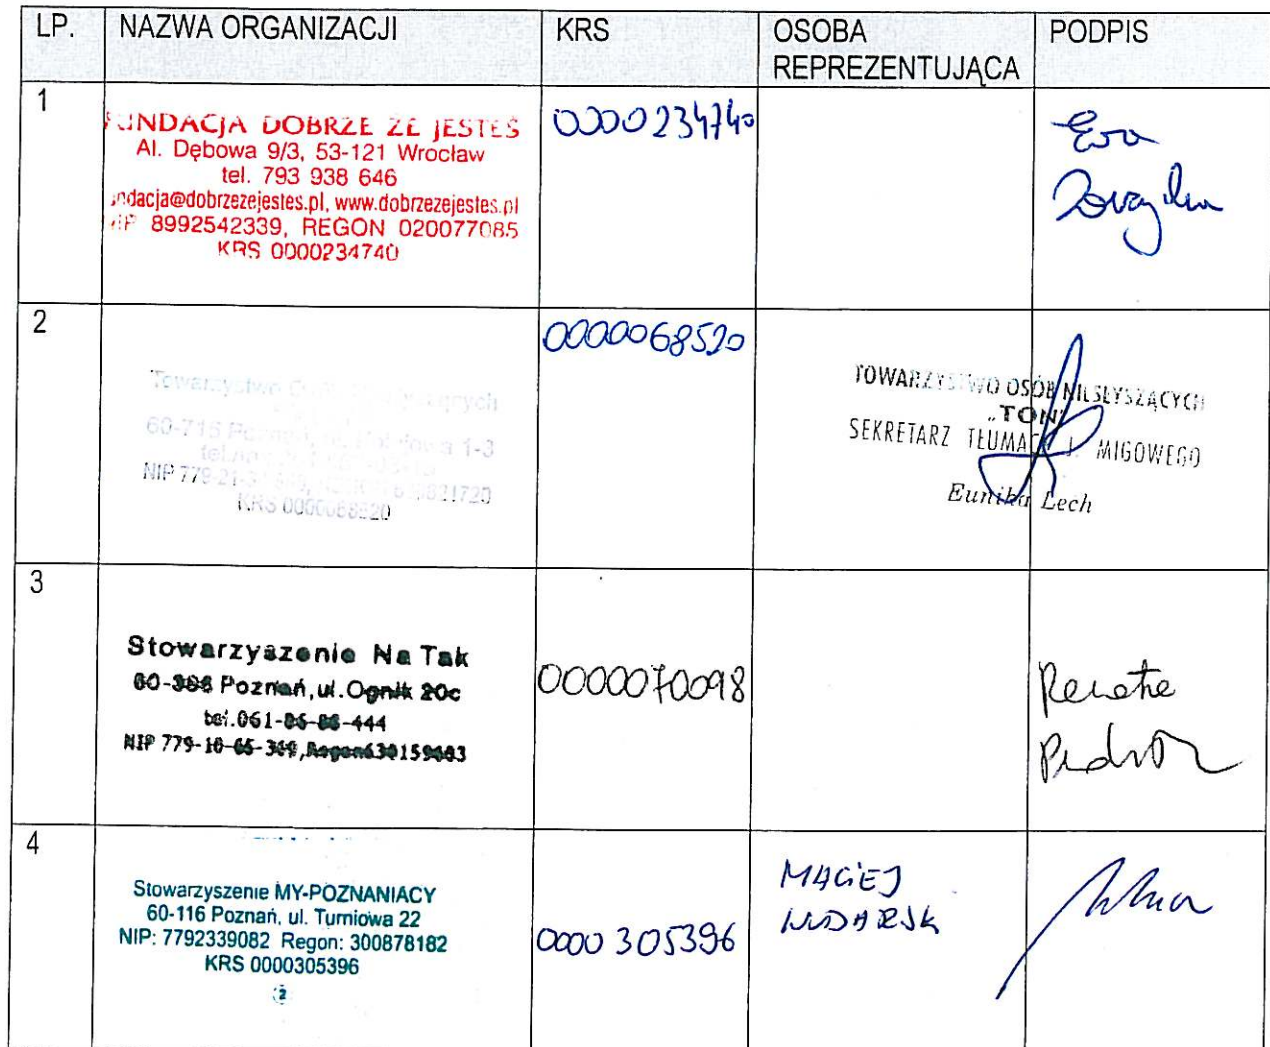 LP. NAZWA ORGANIZACJI KRS OSOBA REPREZENTUJĄCA PODPIS
1
FUNDACJA DOBRZE ŻE JESTEŚ
Al. Dębowa 9/3, 53-121 Wrocław
tel. 793 938 646
ndacja@dobrzezejestes.pl, www.dobrzezejestes.pl
NIP 8992542339, REGON 020077085
KRS 0000234740
0000234740
Ewa
2
Towarzystwo
60-715 1-3
NIP 779-21-3
KRS 0000068520
0000068520
TOWARZYSTWO OSÓB NIESŁYSZĄCYCH
„TON"
SEKRETARZ TŁUMACZ J. MIGOWEGO
Eunika Lech
3
Stowarzyszenie Na Tak
Poznań, ul. Ognik 20c
tel. 061-86-86-444
NIP 779-10-65- Regon
0000070098
4
Stowarzyszenie MY-POZNANIACY
60-116 Poznań, ul. Turniowa 22
NIP: 7792339082 Regon: 300878182
KRS 0000305396
2
0000305396
MACIEJ